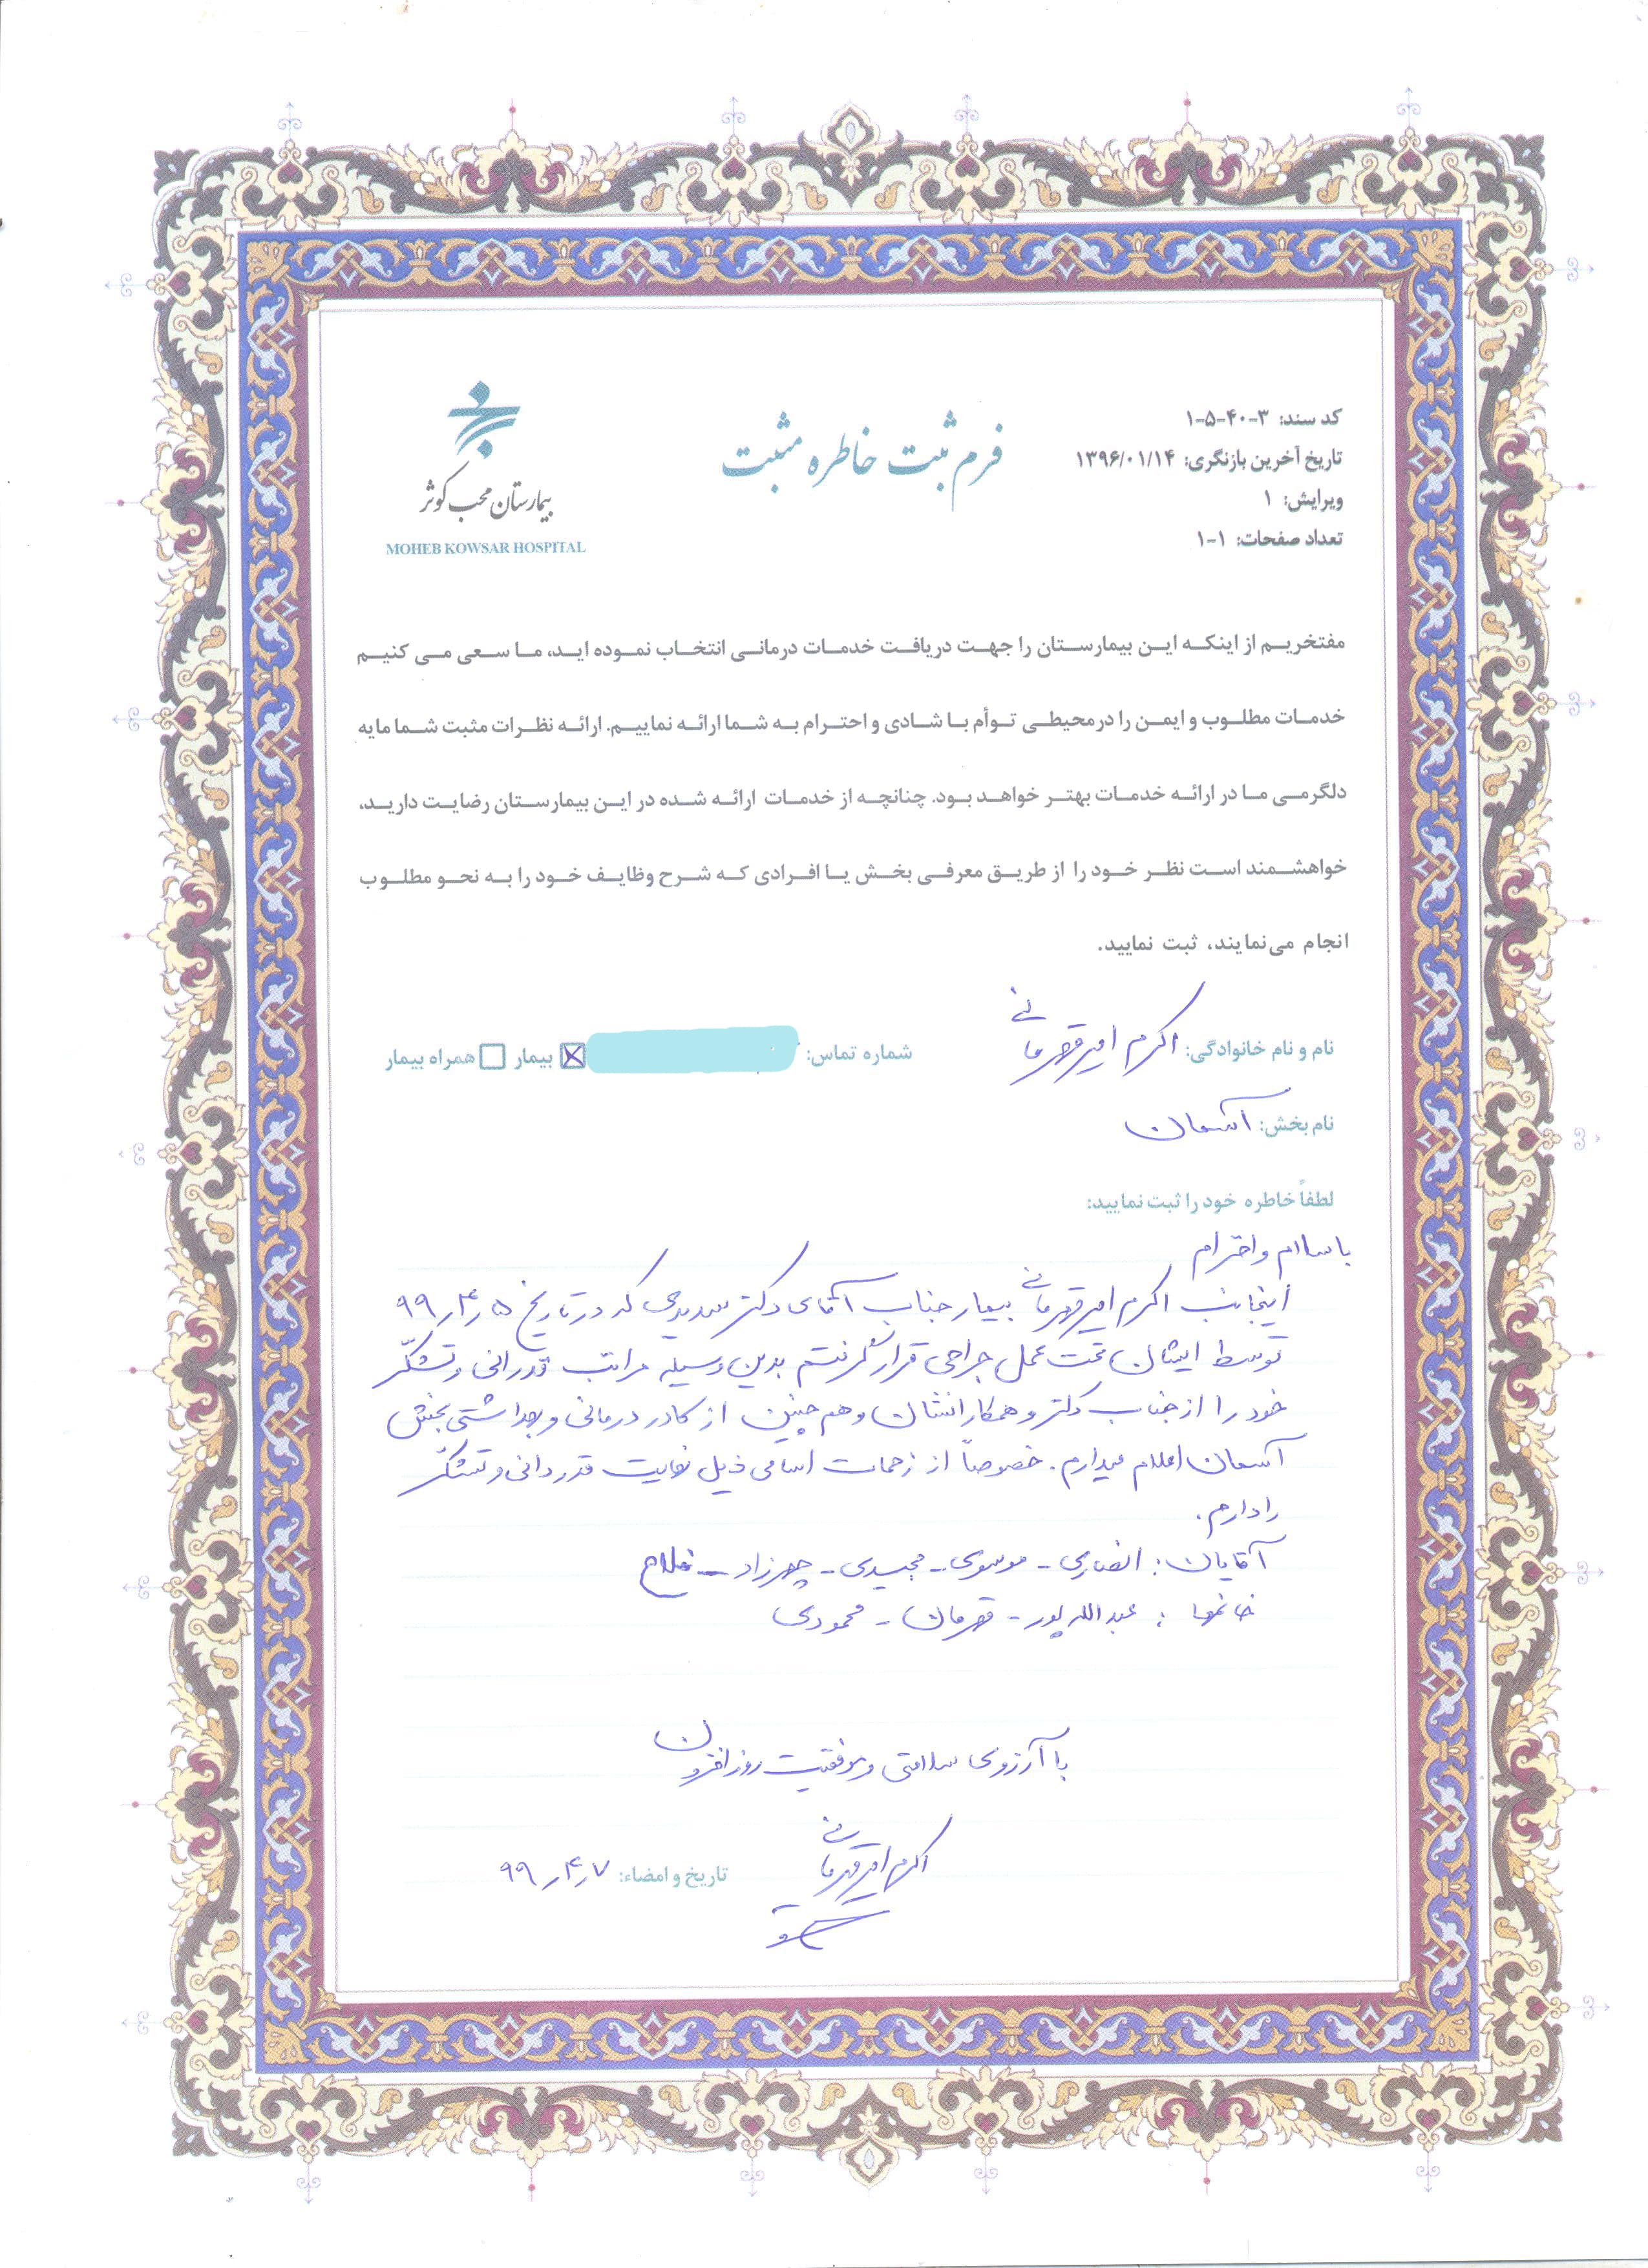 کد سند: ۳-۴۰-۵-۱
تاریخ آخرین بازنگری: ۱۳۹۶/۰۱/۱۴
ویرایش: ۱
تعداد صفحات: ۱-۱
فرم ثبت خاطره مثبت
بیمارستان محب کوثر
MOHEB KOWSAR HOSPITAL
مفتخریم از اینکه این بیمارستان را جهت دریافت خدمات درمانی انتخاب نموده اید، ما سعی می کنیم
خدمات مطلوب و ایمن را در محیطی توأم با شادی و احترام به شما ارائه نماییم. ارائه نظرات مثبت شما مایه
دلگرمی ما در ارائه خدمات بهتر خواهد بود. چنانچه از خدمات ارائه شده در این بیمارستان رضایت دارید،
خواهشمند است نظر خود را از طریق معرفی بخش یا افرادی که شرح وظایف خود را به نحو مطلوب
انجام می‌نمایند، ثبت نمایید.
نام و نام خانوادگی: اکرم امیرقهرمانی شماره تماس: بیمار همراه بیمار
نام بخش: آسمان
لطفاً خاطره خود را ثبت نمایید:
با سلام و احترام
اینجانب اکرم امیرقهرمانی بیمار جناب آقای دکتر که در تاریخ ۹۹٫۴٫۵
توسط ایشان تحت عمل جراحی قرار گرفتم بدین وسیله مراتب قدردانی و تشکّر
خود را از جناب دکتر و همکارانشان و هم چنین از کادر درمانی و بهداشتی بخش
آسمان اعلام میدارم. خصوصاً از زحمات اسامی ذیل نهایت قدردانی و تشکّر
را دارم.
آقایان: انصاری - موسوی - مجیدی - چهرزاد - فلاح
خانمها: عبدالله پور - قهرمان - محمودی
با آرزوی سلامتی و موفقیت روزافزون
اکرم امیرقهرمانی
تاریخ و امضاء: ۹۹٫۴٫۷